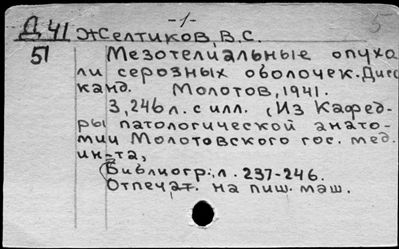 -1- 5
Д 41 Желтиков, В.С.
51 Мезотелиальные опухо
ли серозных оболочек. Дисс
канд. Молотов, 1941.
3, 246 л. с илл. (Из Кафед-
ры патологической анато-
мии Молотовского гос. мед.
ин-та,
Библиогр: л. 237-246.
Отпечат. на пиш. маш.